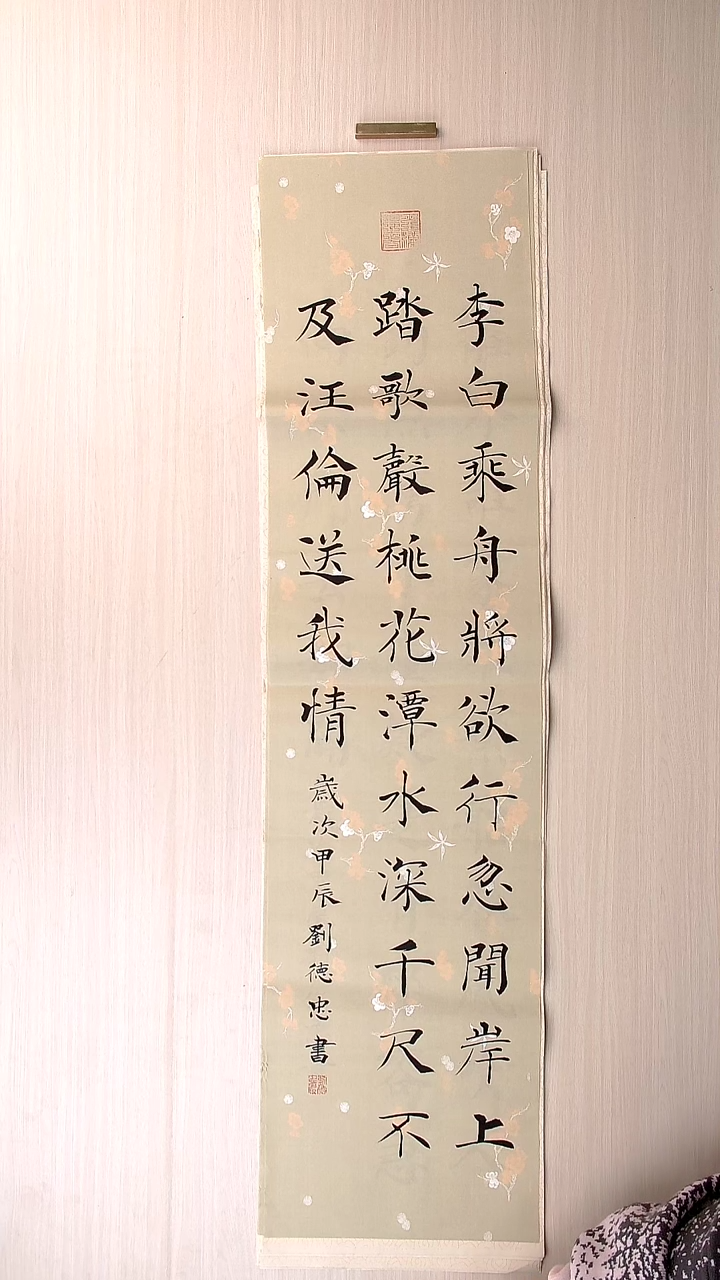 李白乘舟將欲行忽聞岸上
踏歌聲桃花潭水深千尺不
及汪倫送我情
歲次甲辰劉德忠書